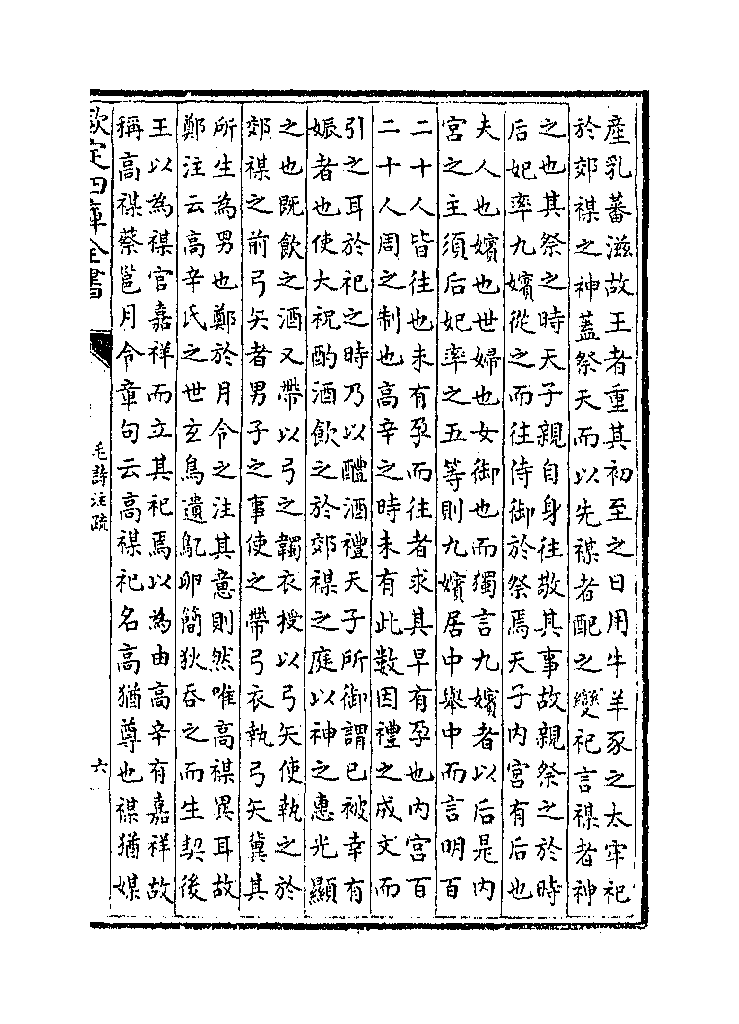 産乳蕃滋故王者重其初至之日用牛羊豕之太牢祀
於郊禖之神蓋祭天而以先禖者配之變祀言禖者神
之也其祭之時天子親自身往敬其事故親祭之於時
后妃率九嬪從之而往侍御於祭焉天子内宮有后也
夫人也嬪也世婦也女御也而獨言九嬪者以后是内
宮之主須后妃率之五等則九嬪居中舉中而言明百
二十人皆往也未有孕而往者求其早有孕也内宮百
二十人周之制也高辛之時未有此數因禮之成文而
引之耳於祀之時乃以醴酒禮天子所御謂已被幸有
娠者也使大祝酌酒飲之於郊禖之庭以神之惠光顯
之也既飲之酒又帶以弓之韣衣授以弓矢使執之於
郊禖之前弓矢者男子之事使之帶弓衣執弓矢冀其
所生為男也鄭於月令之注其意則然唯高禖異耳故
鄭注云高辛氏之世𤣥鳥遺鳦卵簡狄吞之而生契後
王以為禖官嘉祥而立其祀焉以為由高辛有嘉祥故
稱高禖蔡邕月令章句云高禖祀名高猶尊也禖猶媒
欽定四庫全書
毛詩注疏
六